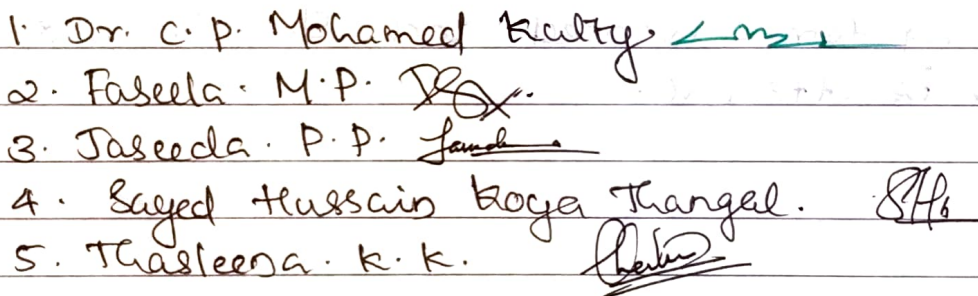 1. Dr. C. P. Mohamed Kutty
2. Faseela. M.P.
3. Jaseeda. P.P.
4. Sayed Hussain Koya Thangal.
5. Thasleena. K. K.